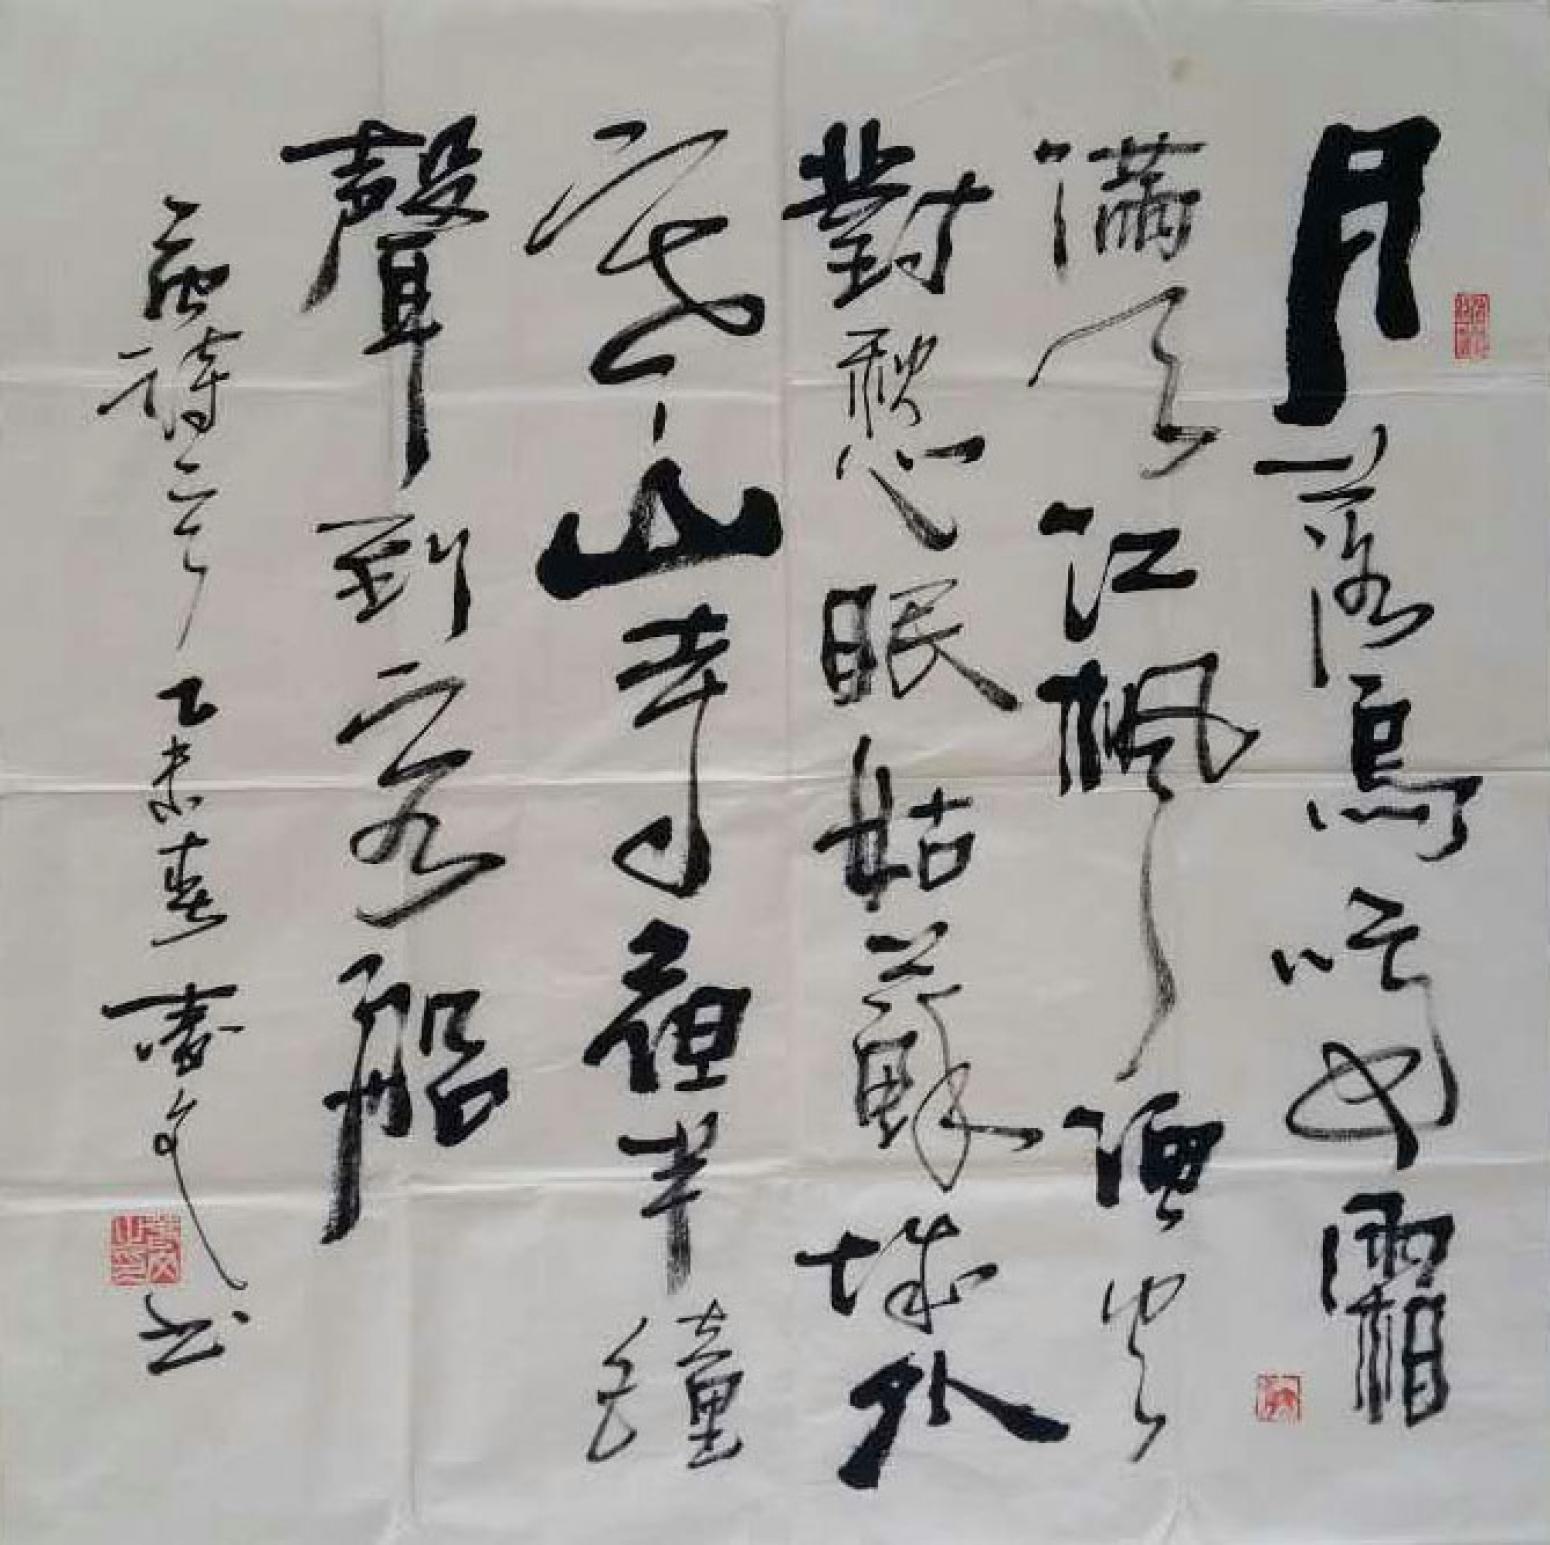 月落烏啼霜
滿天江楓漁火
對愁眠姑蘇城外
寒山寺夜半鐘
聲到客船
詩 乙未春 书